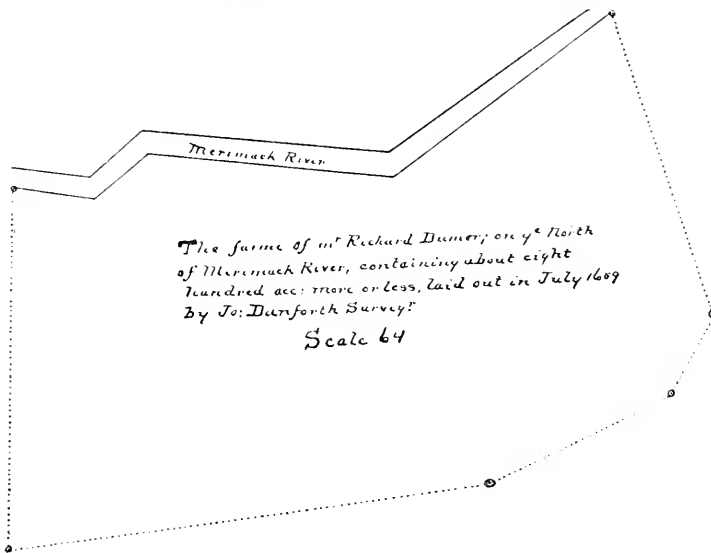 Merimack River
The farme of mr Richard Dumer; on ye North
of Merimack River, containing about eight
hundred acc: more or less, laid out in July 1659
by Jo: Danforth Surveyr
Scale 64